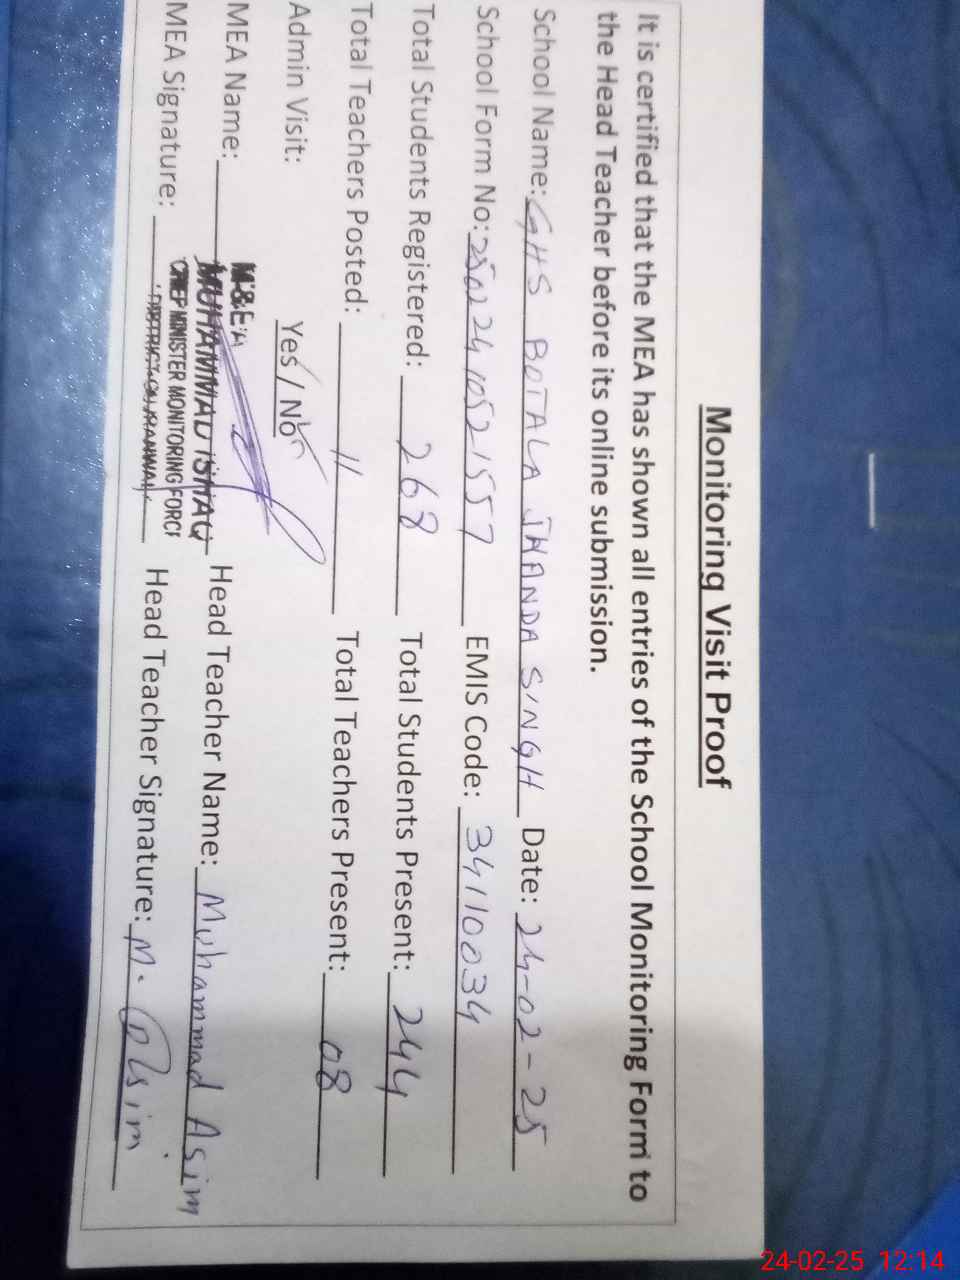 Monitoring Visit Proof
It is certified that the MEA has shown all entries of the School Monitoring Form to
the Head Teacher before its online submission.
School Name: GHS BOTALA JHANDA SINGH Date: 24-02-25
School Form No: 25022410521557 EMIS Code: 34110034
Total Students Registered: 268 Total Students Present: 244
Total Teachers Posted: 11 Total Teachers Present: 08
Admin Visit: Yes / No
M&EA
MEA Name: MUHAMMAD ISHAQ Head Teacher Name: Muhammad Asim
CHIEF MINISTER MONITORING FORCE
MEA Signature: Head Teacher Signature: M. Asim
24-02-25 12:14